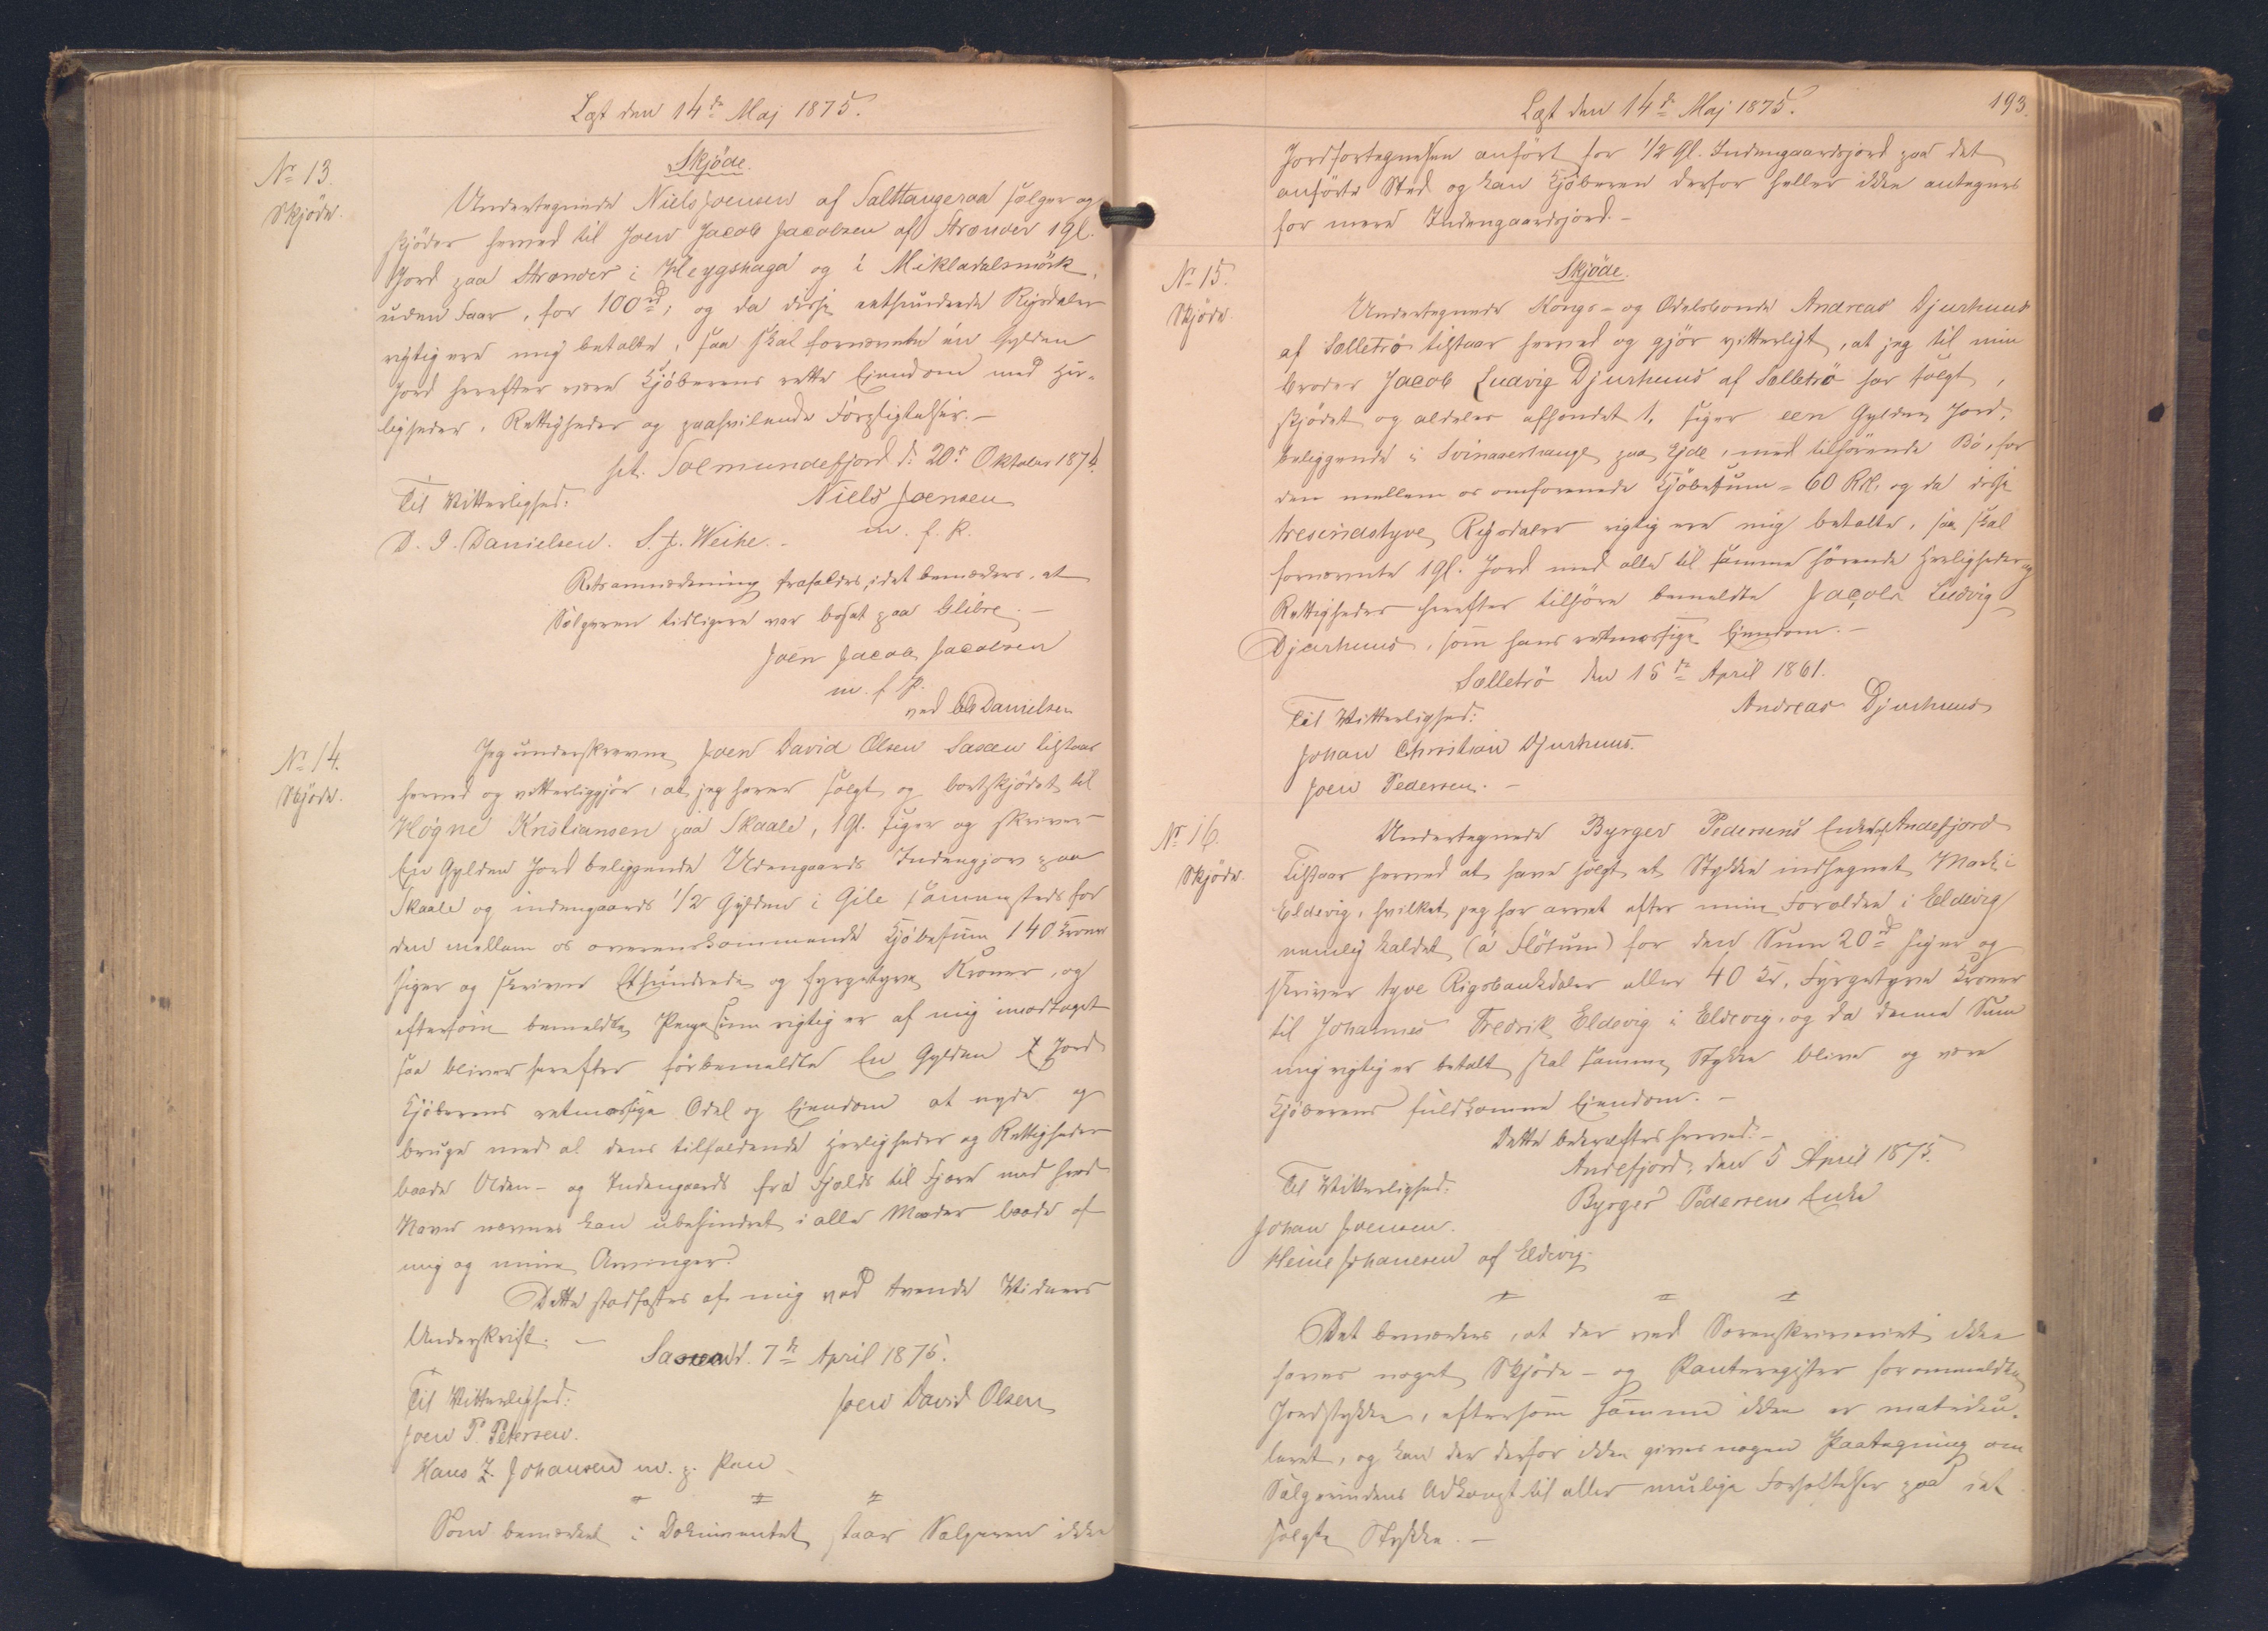 Læst den 14de Maj 1875.
No 13.
Skjøde.
Skjøde.
Undertegnede Niels Joensen af Salttangeraa sælger og
skjøder herved til Joen Jacob Jacobsen af Strænder 1 gl.
Jord paa Strænder i Heygshaga og i Mikladalsmörk,
uden Faar, for 100 rd; og da disse ethundrede Rigsdaler
rigtig ere mig betalte, saa skal fornævnte én Gylden
Jord herefter være Kjøberens rette Ejendom med Her-
ligheder, Rettigheder og paahvilende Forpligtelser. -
pt. Solmundefjord d: 20de Oktober 1874.
Til Vitterlighed:
Niels Joensen
D. I. Danielsen. S. J. Weihe. -
m. f. P.
Retsanmærkning frafaldes, idet bemærkes, at
Sælgeren tidligere var bosat paa Glibre. -
Joen Jacob Jacobsen
m. f. P.
ved Danielsen
No 14.
Skjøde.
Jeg underskrevne Joen David Olsen Sasæn tilstaar
herved og vitterliggjør, at jeg haver solgt og bortskjødet til
Høgne Kristiansen paa Skaale, 1 Gl. siger og skriver
En Gylden Jord beliggende Udengaards Indengjov paa
Skaale og indengaards 1/2 Gylden i Gile sammesteds for
den mellem os overenskommende Kjøbesum 140 Kroner
siger og skriver Ethundrede og fyrgetyve Kroner, og
eftersom bemeldte Pengesum rigtig er af mig imodtaget
saa bliver herefter förbemeldte En Gylden Jord
Kjöberens retmæssige Odel og Ejendom at nyde og
bruge med al dens tilfaldende Herligheder og Rettigheder
baade Uden- og Indengaards fra Fjelds til Fjære med hvad
Navn nævnes kan ubehindret i alle Maader baade af
mig og mine Arvinger.
Dette stadfæstes af mig ved tvende Vidners
Underskrift. -
d. 7de April 1875.
Til Vitterlighed:
Joen David Olsen
Joen P. Petersen.
Hans Z. Johansen m. p. Pen
Som bemærket i Dokumentet staar Sælgeren ikke
Læst den 14de Maj 1875.
193.
Jordfortegnelsen anfört for 1/2 Gl. Indengaardsjord paa det
anførte Sted og kan Kjöberen derfor heller ikke antegnes
for mere Indengaardsjord. -
No 15.
Skjøde.
Skjøde.
Undertegnede Kongs- og Odelsbonde Andreas Djurhuus
af Selletrö tilstaar herved og gjör vitterligt, at jeg til min
broder Jacob Ludvig Djurhuus af Selletrö har solgt,
skjödet og aldeles afhendet 1. siger een Gylden Jord,
beliggende i Svinaaerhauge paa Ejde, med tilhörende Bö, for
den mellem os omforenede Kjöbesum = 60 Rd., og da disse
tresindstyve Rigsdaler rigtig ere mig betalte, saa skal
fornævnte 1 gl. Jord med alle til samme hörende Herligheder og
Rettigheder herefter tilhöre bemeldte Jacob Ludvig
Djurhuus, som hans retmæssige Ejendom. -
Selletrö den 15de April 1861.
Til Vitterlighed:
Andreas Djurhuus
Johan Christian Djurhuus.
Joen Pedersen. -
No 16.
Skjøde.
Undertegnede Byrger Pedersens Enke af Andefjord
Tilstaar herved at have solgt et Stykke indhegnet Mark i
Eldevig, hvilket jeg har arvet efter mine Forældre i Eldevig
nemlig kaldet (á Flötum) for den Sum 20 rd siger og
skriver tyve Rigsbankdaler eller 40 Kr. Fyrgetyve Kroner
til Johannes Fredrik Eldevig i Eldevig, og da denne Sum
mig rigtig er betalt skal samme Stykke blive og være
Kjöberens fuldkomne Ejendom. -
Dette bekræftes herved. -
Andefjord, den 5 April 1875.
Til Vitterlighed:
Byrger Pedersens Enke
Johan Joensen.
Heine Johanesen af Eldevig.
Det bemærkes, at der ved Sorenskriveriet ikke
haves noget Skjöde- og Panteregister for ommeldte
Jordstykke, eftersom samme ikke er matriku-
leret, og kan der derfor ikke gives nogen Paategning om
Sælgerindens Adkomst til eller mulige Forhæftelser paa det
solgte Stykke. -